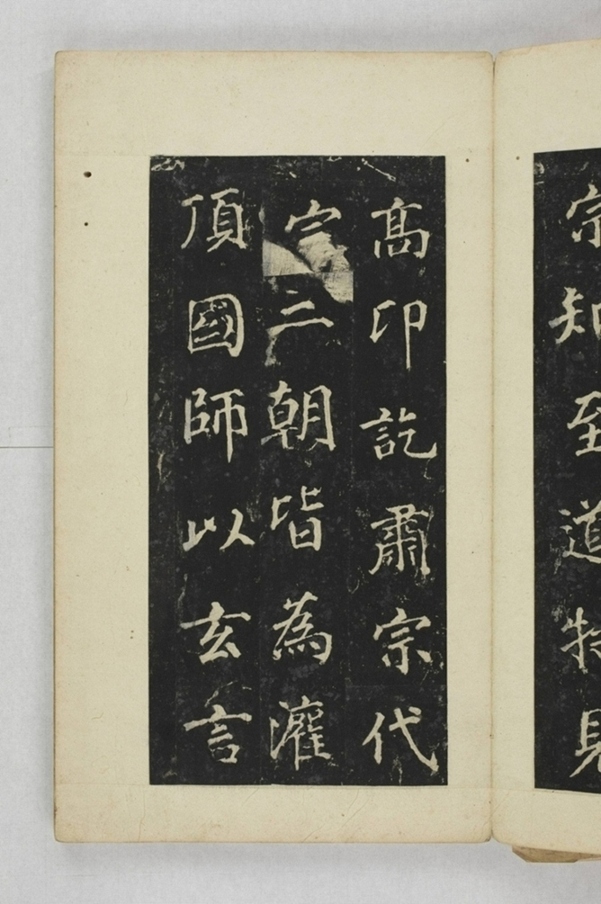 宗知至道特見
高卬訖肅宗代
宗三朝皆為灌
頂國師以玄言